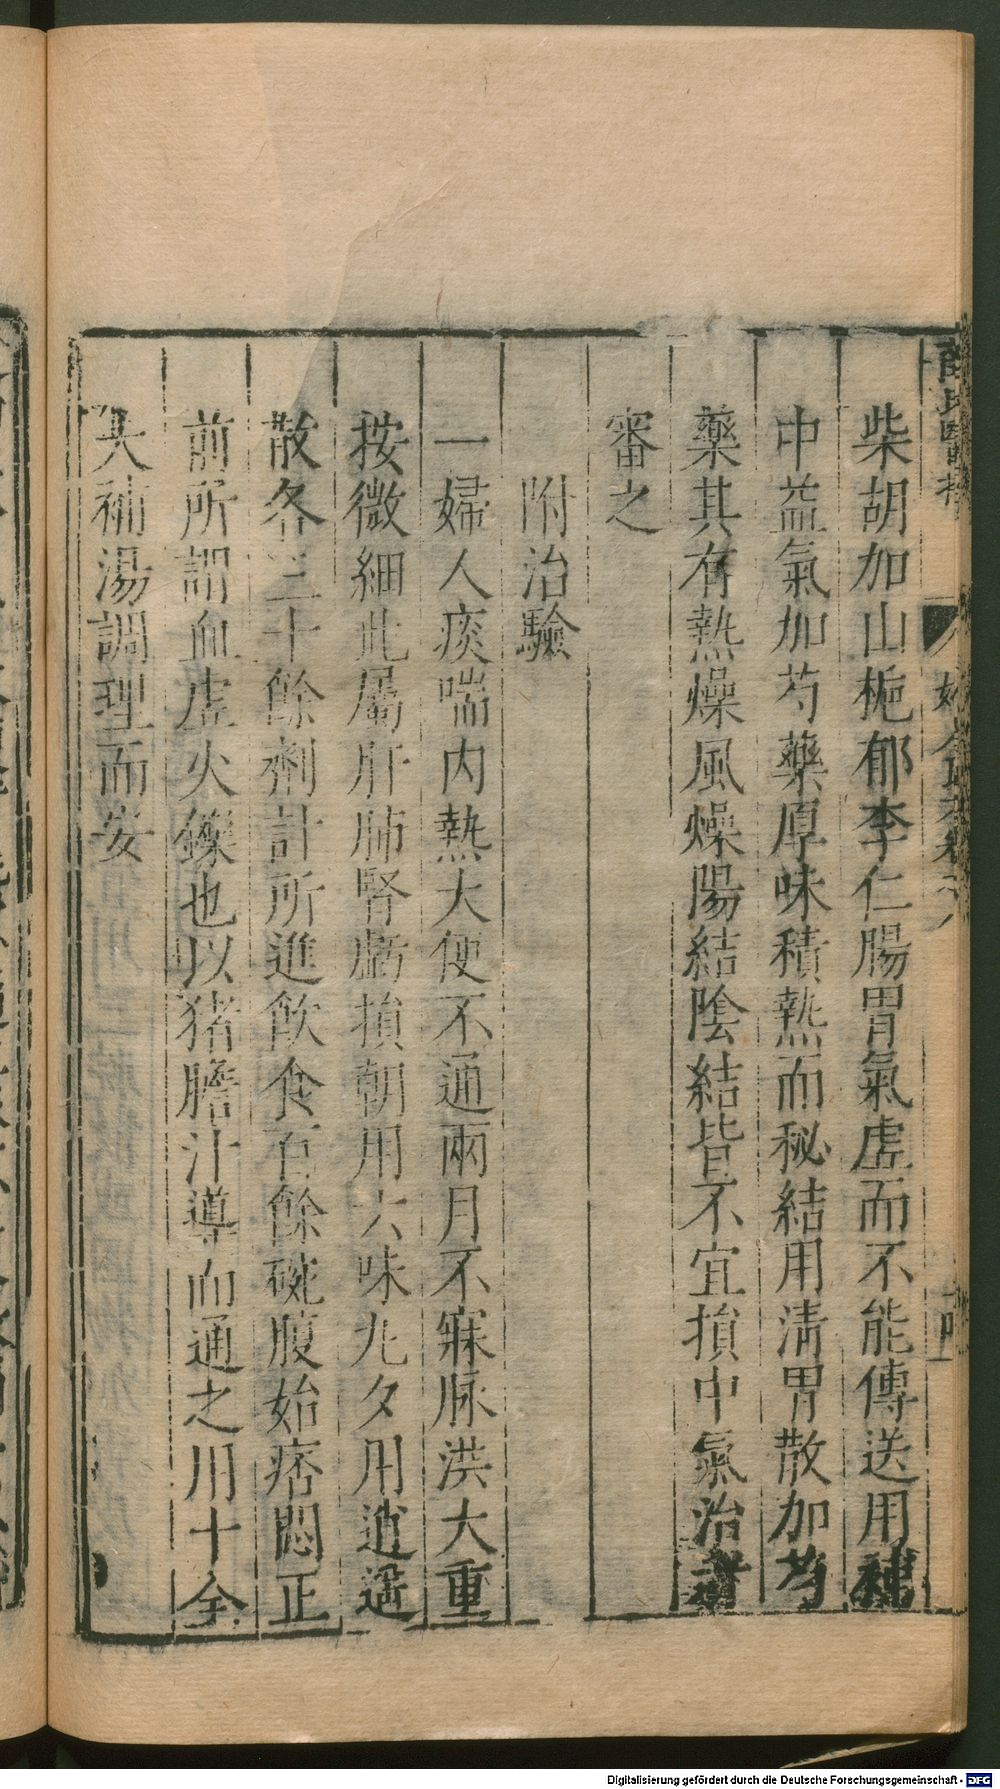 柴胡加山梔郁李仁腸胃氣虚而不能傳送用補
中益氣加芍藥厚味積熱而秘結用清胃散加芍
藥其有熱燥風燥陽結陰結皆不宜損中氣治者
審之
附治驗
一婦人痰喘内熱大便不通兩月不寐脉洪大重
按微細此屬肝肺腎虧損朝用六味丸夕用逍遥
散各三十餘劑計所進飲食百餘碗腹始痞悶正
前所謂血虚火鑠也以猪膽汁導而通之用十全
大補湯調理而安
Digitalisierung gefördert durch die Deutsche Forschungsgemeinschaft - DFG